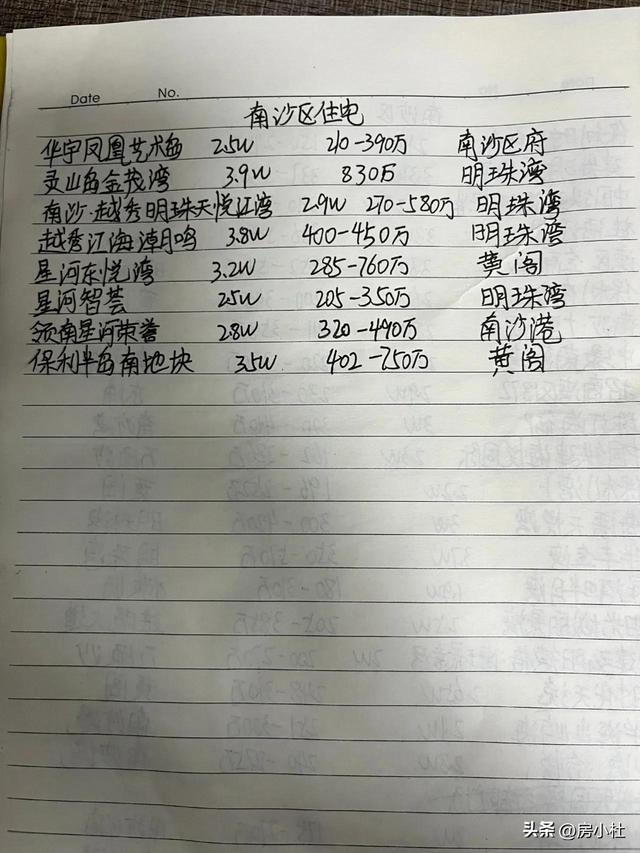 Date No.
南沙区住宅
华宇凤凰艺术岛 2.5W 210-390万 南沙区府
灵山岛金茂湾 3.9W 830万 明珠湾
南沙·越秀明珠天悦江湾 2.9W 270-580万 明珠湾
越秀江海潮鸣 3.8W 400-450万 明珠湾
星河东悦湾 3.2W 285-760万 黄阁
星河智荟 2.5W 205-350万 明珠湾
领南星河荣誉 2.8W 320-490万 南沙港
保利半岛南地块 3.5W 402-750万 黄阁
头条 @房小杜